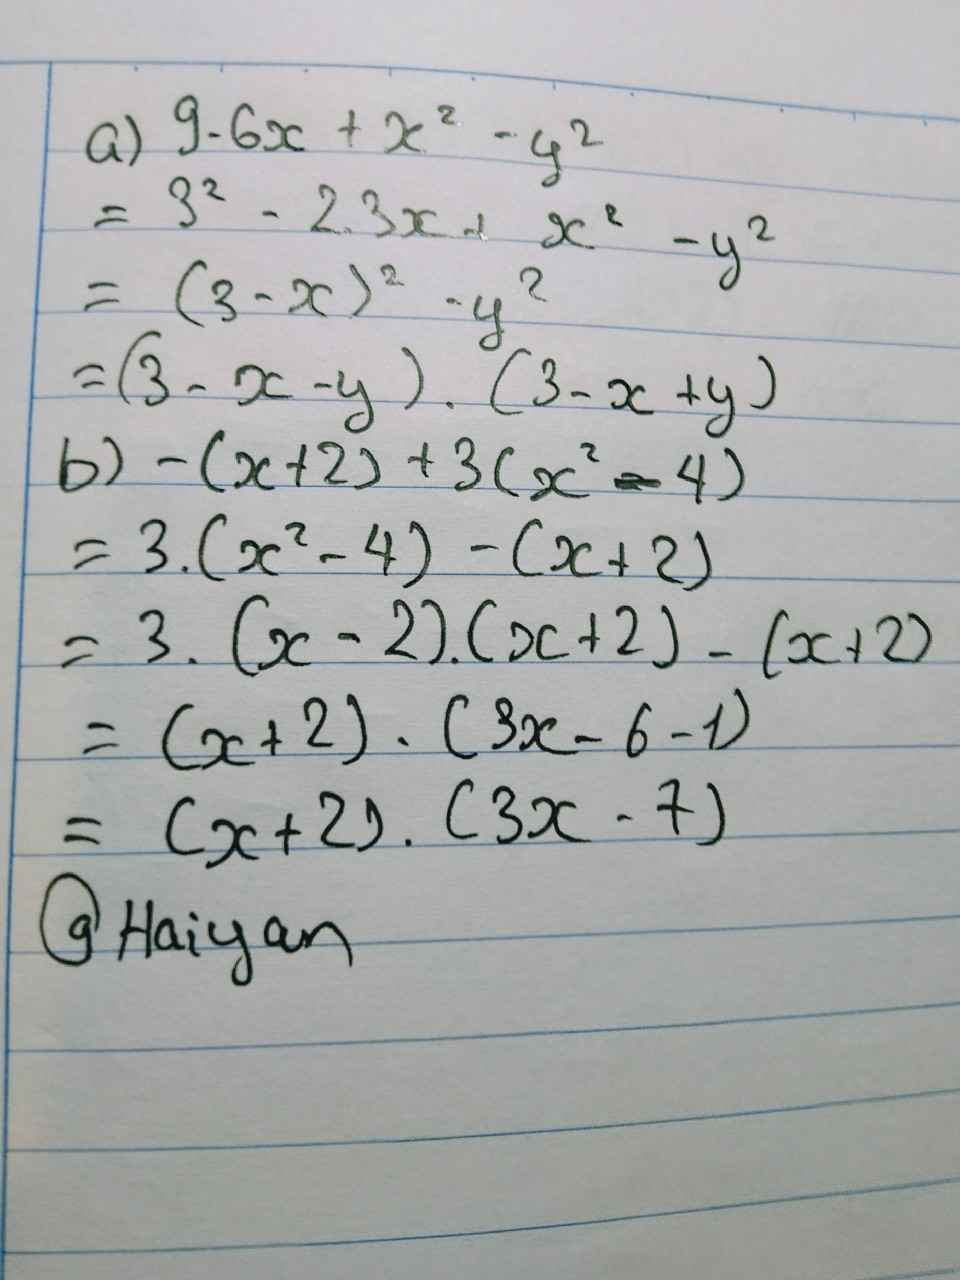 a) 9-6x + x² - y²
= 3² - 2.3x + x² - y²
= (3 - x)² - y²
= (3 - x - y) . (3 - x + y)
b) - (x+2) + 3(x² - 4)
= 3.(x² - 4) - (x + 2)
= 3. (x - 2).(x+2) - (x+2)
= (x+2) . (3x - 6 - 1)
= (x+2) . (3x - 7)
@Haiyan